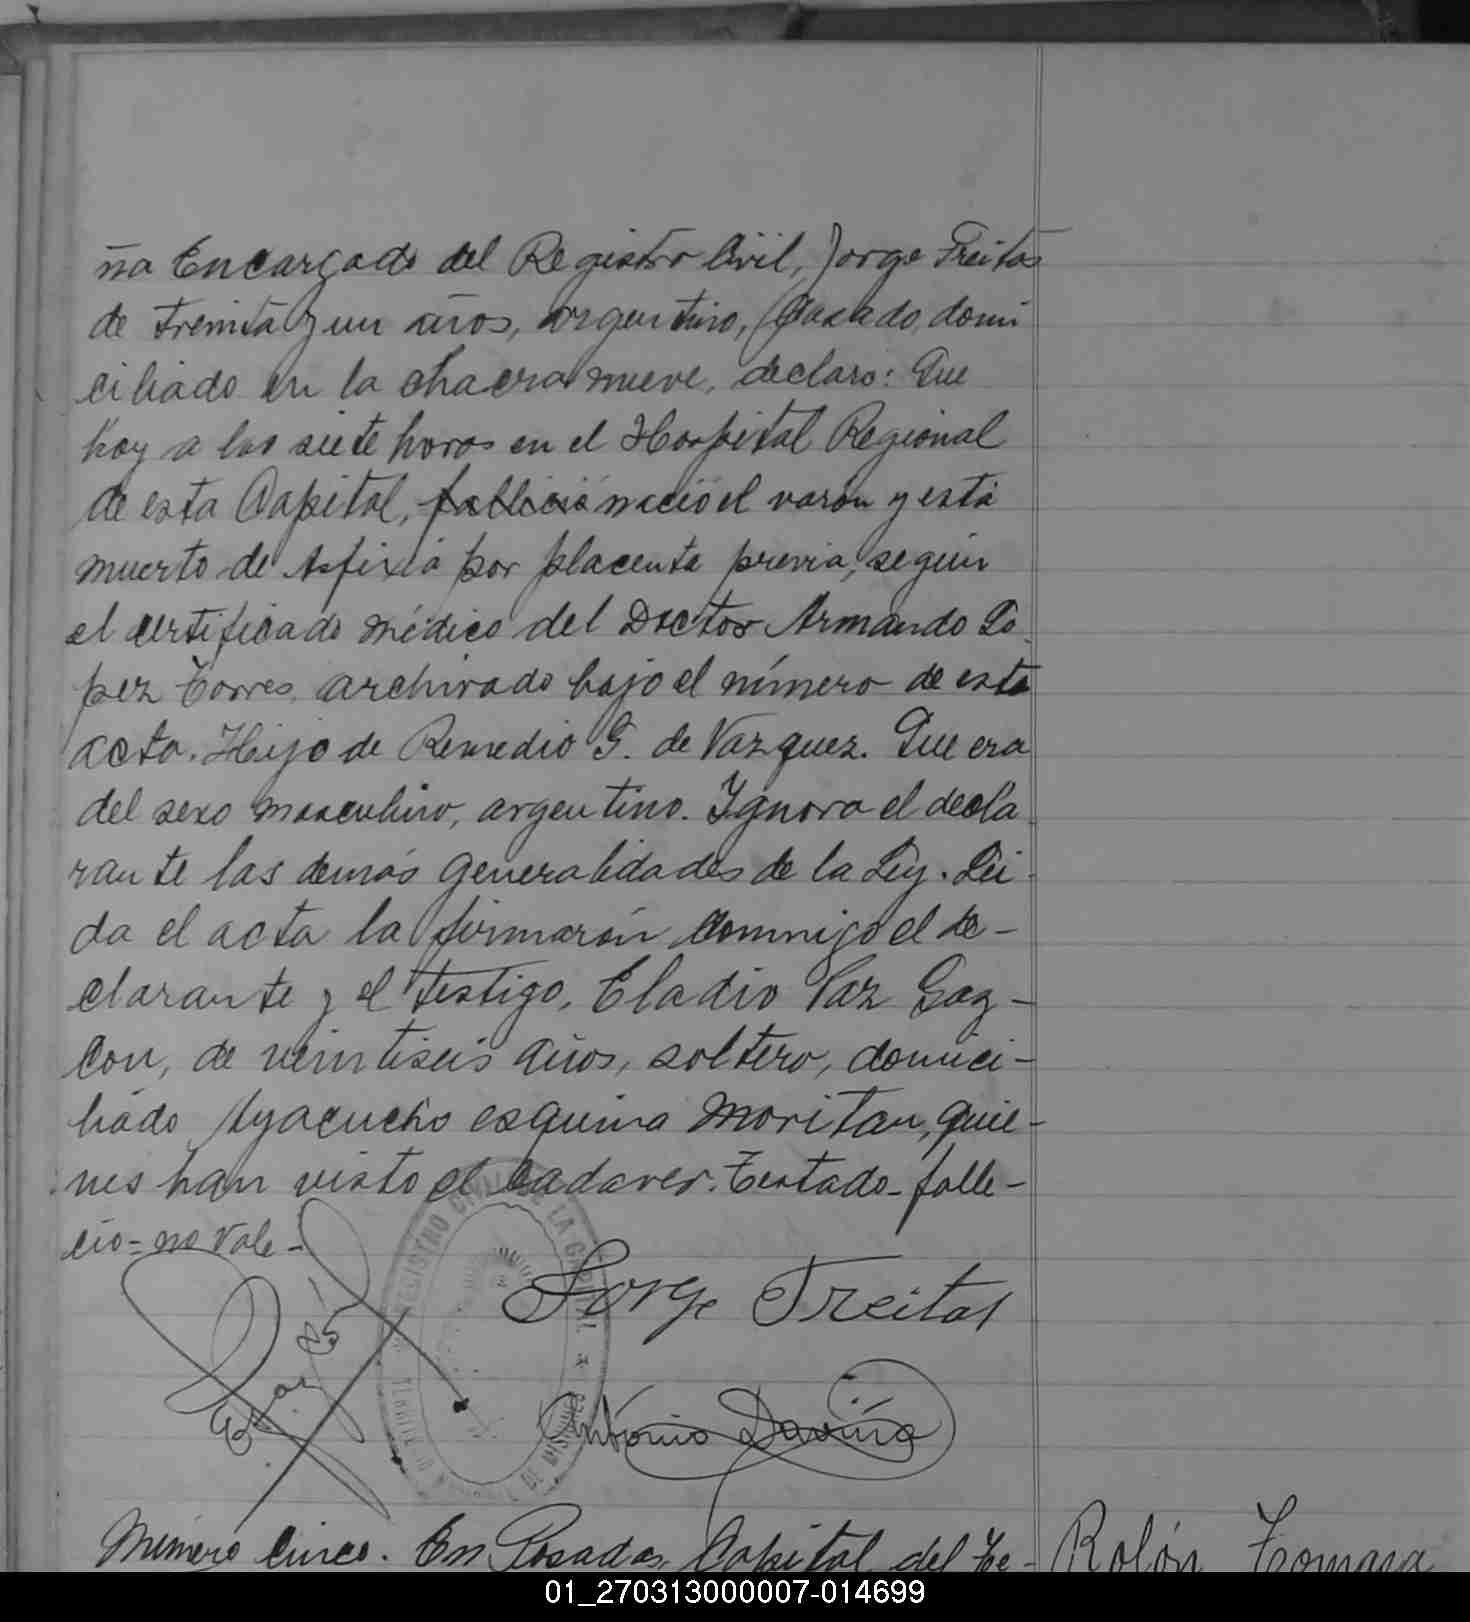 ña Encargado del Registro Civil, Jorge Freitas
de treinta y un años, argentino, casado, domi
ciliado en la chacra nueve, declaro: Que
hoy a las siete horas en el Hospital Regional
de esta Capital, falleció nació el varón y está
muerto de Asfixia por placenta previa, según
el certificado médico del Doctor Armando Lo
pez Torres, archivado bajo el número de esta
acta. Hijo de Remedio G. de Vazquez. Que era
del sexo masculino, argentino. Ignora el decla
rante las demás generalidades de la Ley. Lei
da el acta la firmarón conmigo el de-
clarante y el testigo, Eladio Paz Gaz-
con, de veintiseis años, soltero, domici-
liado Ayacucho esquina Moritan, quie-
nes han visto el cadaver. Testado-falle-
cio=no vale-
REGISTRO CIVIL DE LA CAPITAL
TERRITORIO DE MISIONES
Jorge Freitas
Antonio Daviña
Número cinco. En Posadas, Capital del Te-
Rolón Tomasa
01_270313000007-014699